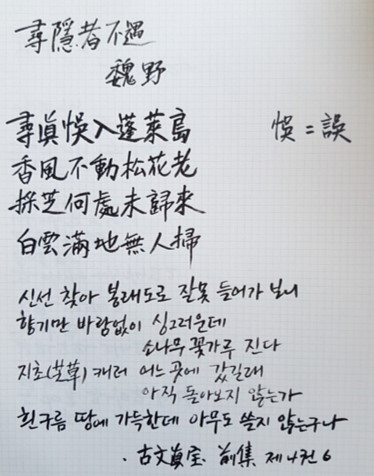 尋隱者不遇
魏野
尋眞悞入蓬萊島 悞 = 誤
香風不動松花老
採芝何處未歸來
白雲滿地無人掃
신선 찾아 봉래도로 잘못 들어가 보니
향기만 바람없이 싱그러운데
소나무 꽃가루 진다
지초(芝草) 캐러 어느 곳에 갔길래
아직 돌아오지 않는가
흰구름 땅에 가득한데 아무도 쓸지 않는구나
· 古文眞宝 前集 제4권 6